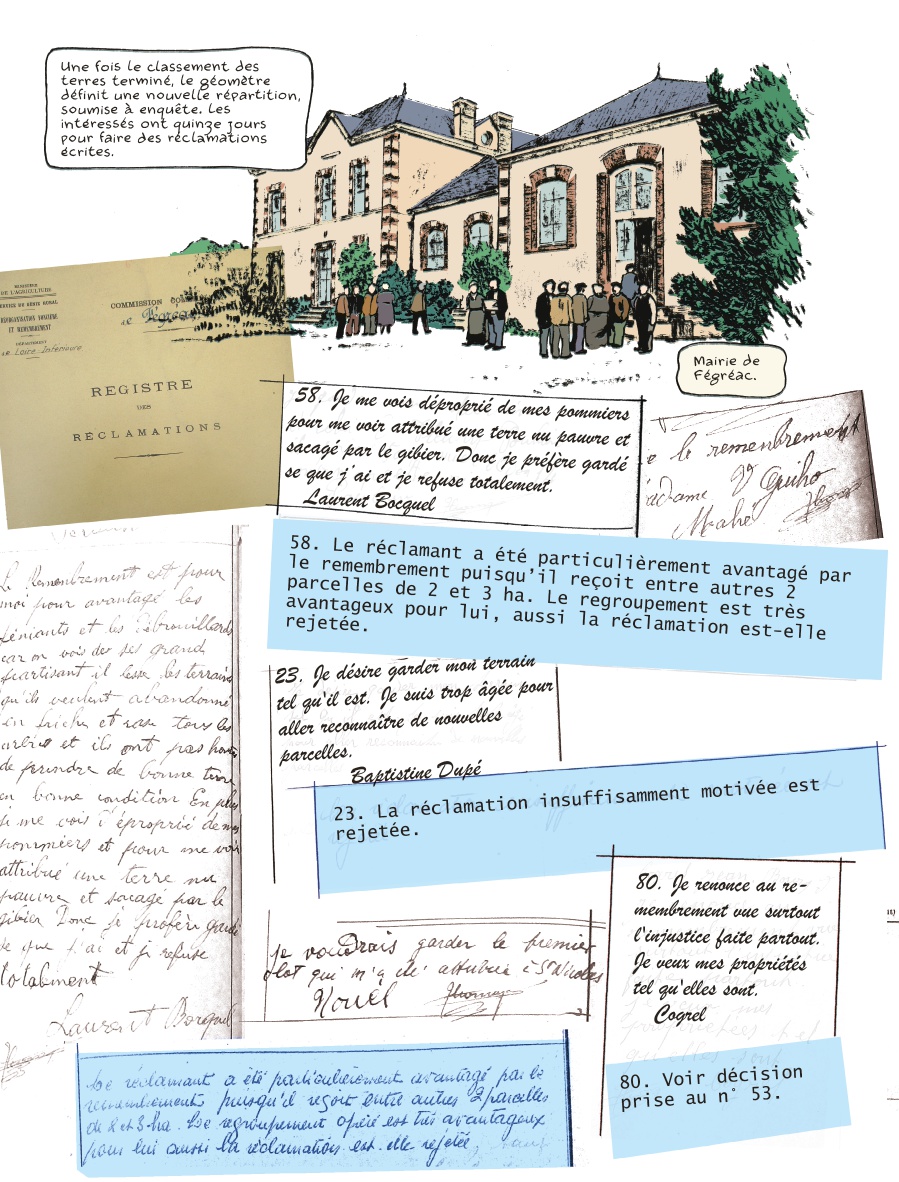 Une fois le classement des
terres terminé, le géomètre
définit une nouvelle répartition,
soumise à enquête. Les
intéressés ont quinze jours
pour faire des réclamations
écrites.
Mairie de
Fégréac.
MINISTÈRE
DE L'AGRICULTURE
SERVICE DU GÉNIE RURAL
RÉORGANISATION FONCIÈRE
ET REMEMBREMENT
DÉPARTEMENT
de Loire-Inférieure
COMMISSION
de Fégréac
REGISTRE
DES
RÉCLAMATIONS
58. Je me vois déproprié de mes pommiers
pour me voir attribué une terre nu pauvre et
sacagé par le gibier. Donc je préfère gardé
se que j'ai et je refuse totalement.
Laurent Bocquel
le remembrement
Madame V Guiho
Mahé
58. Le réclamant a été particulièrement avantagé par
le remembrement puisqu'il reçoit entre autres 2
parcelles de 2 et 3 ha. Le regroupement est très
avantageux pour lui, aussi la réclamation est-elle
rejetée.
Le Remenbrement est pour
moi pour avantagé les
féniants et les débrouillards
car on vois der ses grand
partisant il lesse les terrains
qu'ils veulent abandonné
en friche et rase tous les
arbres et ils ont pas honte
de prendre de bonne terre
en bonne condition En plus
je me vois déproprié de mes
pommiers et pour me voir
attribué une terre nu
pauvre et sacagé par le
gibier Donc je préfère gardé
se que j'ai et je refuse
totalement
Laurent Bocquel
23. Je désire garder mon terrain
tel qu'il est. Je suis trop âgée pour
aller reconnaître de nouvelles
parcelles.
Baptistine Dupé
23. La réclamation insuffisamment motivée est
rejetée.
80. Je renonce au re-
membrement vue surtout
l'injustice faite partout.
Je veux mes propriétés
tel qu'elles sont.
Cogrel
je voudrais garder le premier
lot qui m'a été attribué à St Nicolas
Nouël
80. Voir décision
prise au n° 53.
Le réclamant a été particulièrement avantagé par le
remembrement puisqu'il reçoit entre autres 2 parcelles
de 2 et 3 ha. Le regroupement opéré est très avantageux
pour lui aussi la réclamation est-elle rejetée